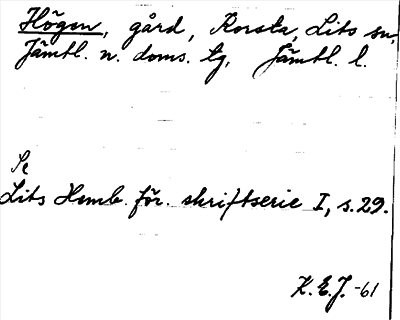 Högen, gård, Korsta, Lits sn,
Jämtl. n. doms. tg. Jämtl. l.
Se
Lits Hemb. för. skriftserie I, s. 29.
K.E.J. -61